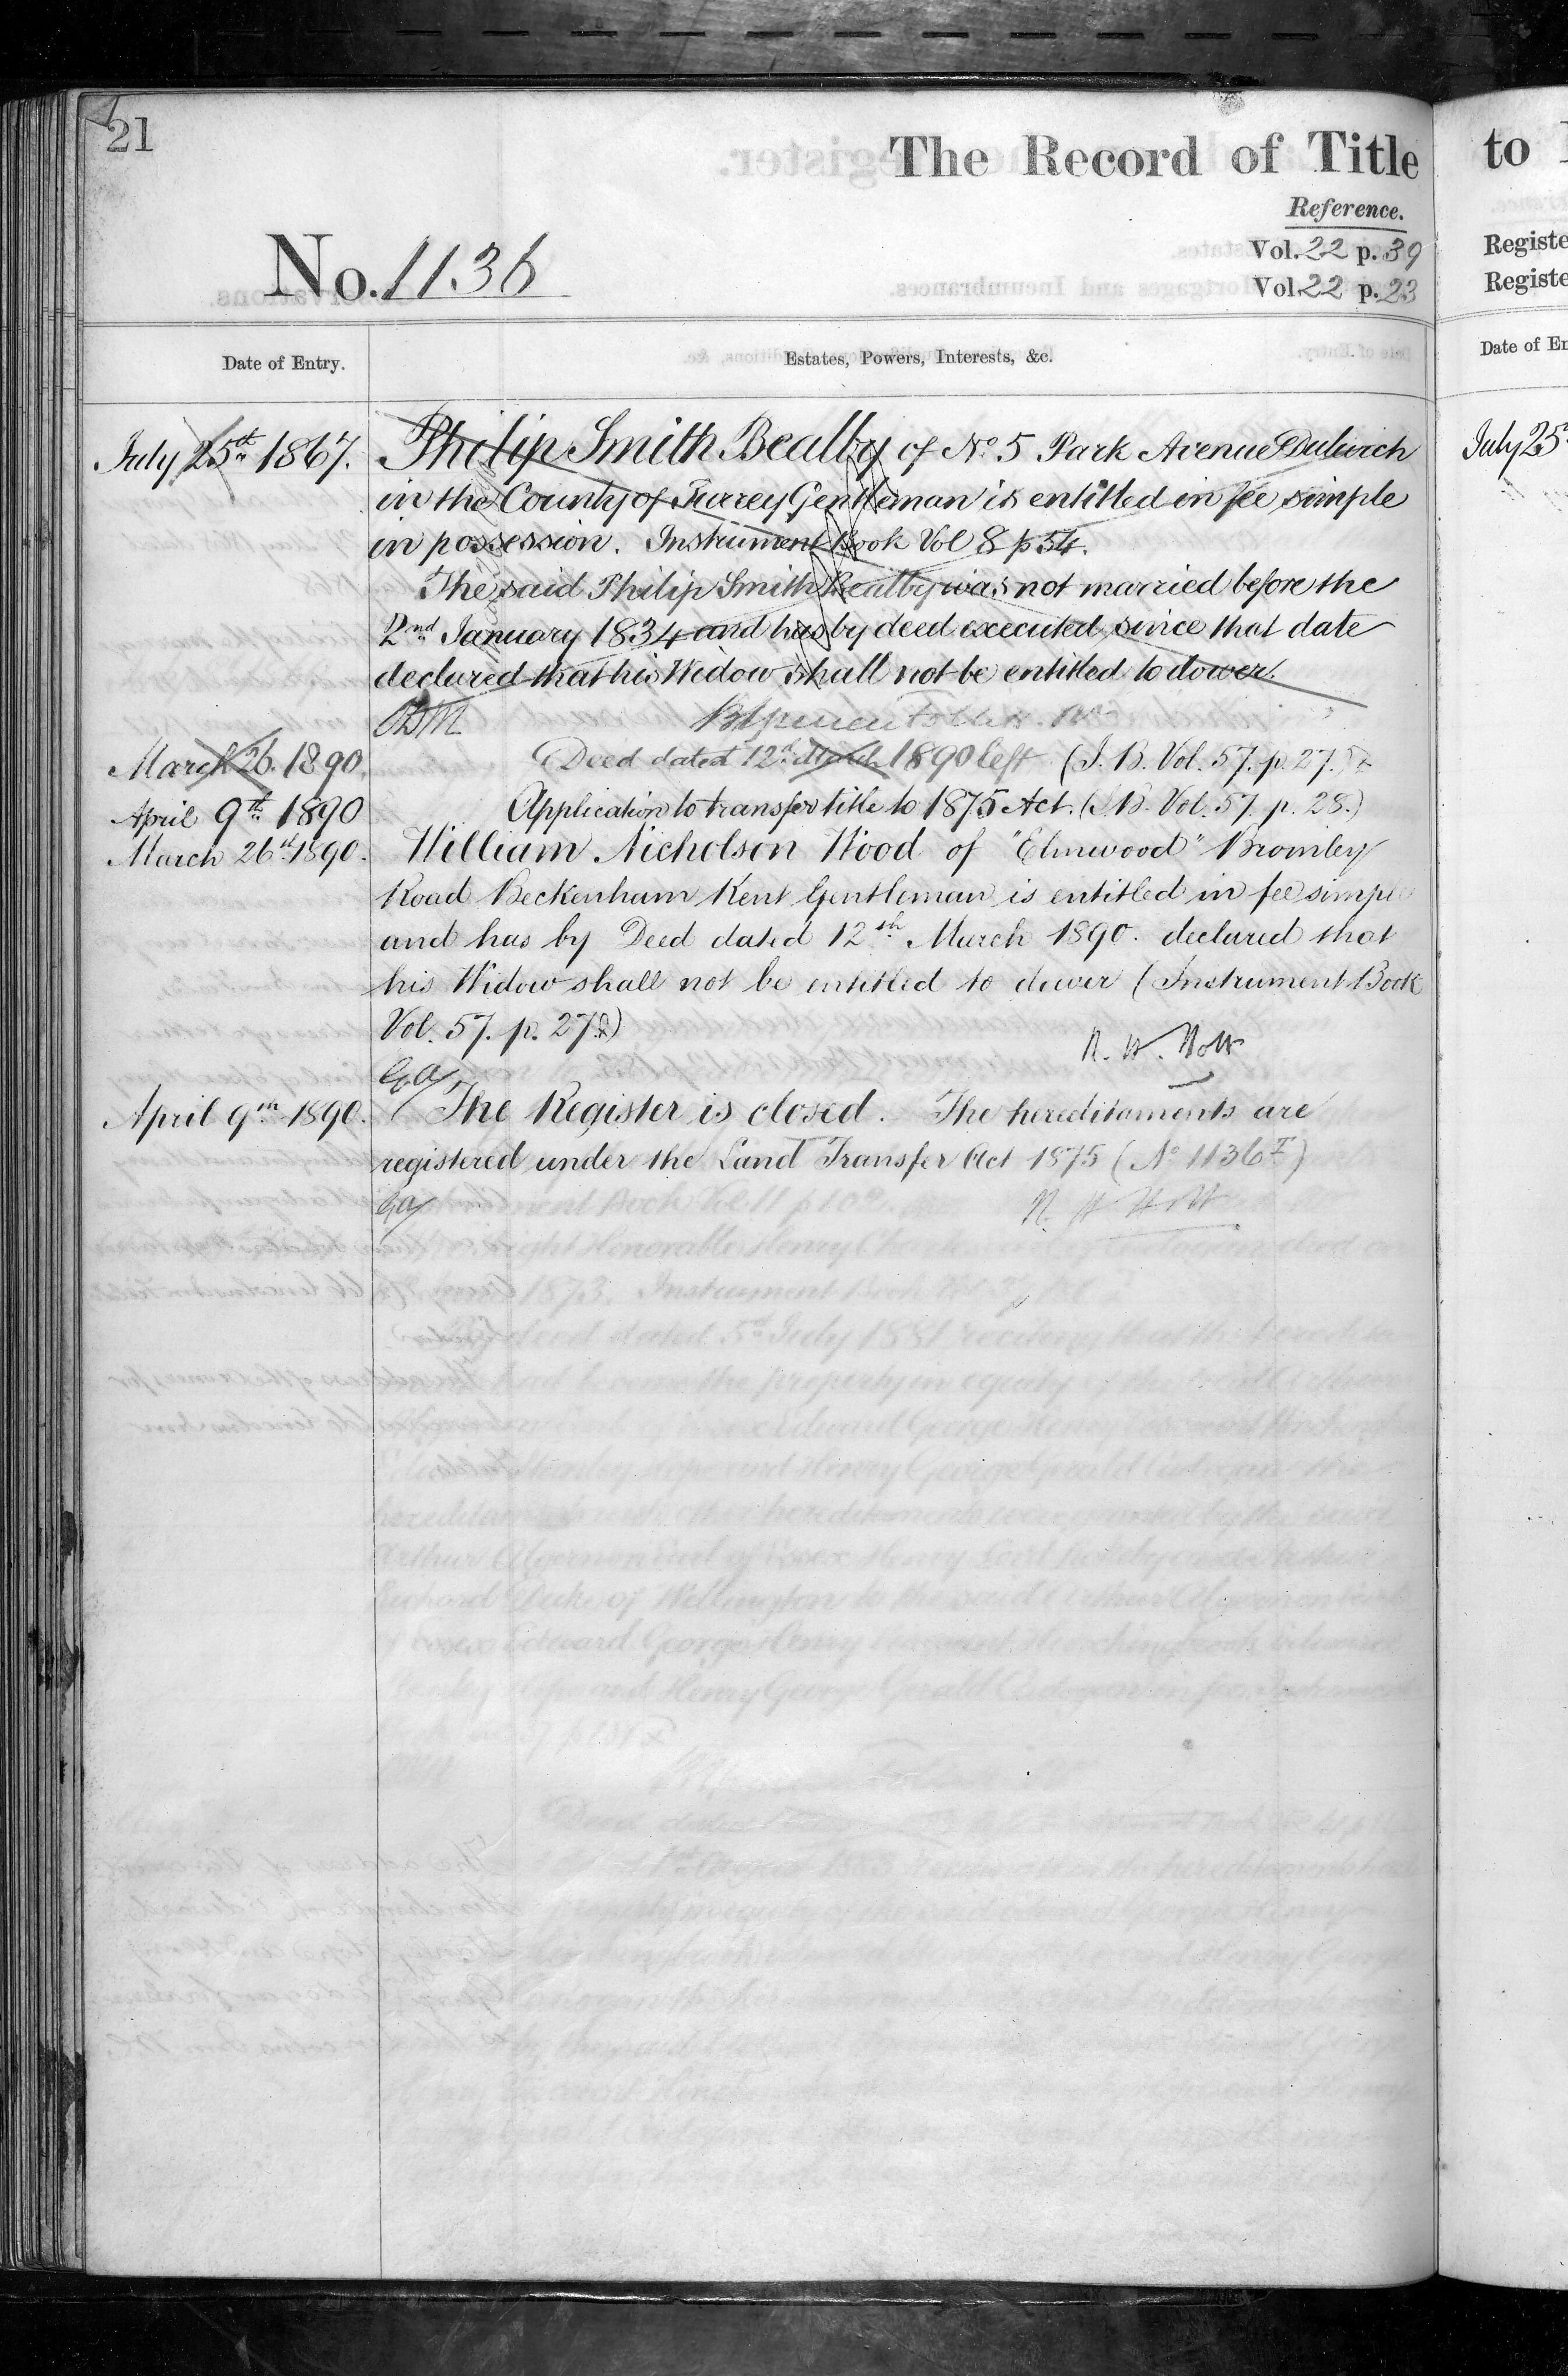 21
The Record of Title
Reference.
No. 1136
Vol. 22 p. 39
Vol. 22 p. 23
Date of Entry.
Estates, Powers, Interests, &c.
July 25th 1867.
Philip Smith Bealby of No. 5 Park Avenue Dulwich
in the County of Surrey Gentleman is entitled in fee simple
in possession. Instrument Book Vol 8 p 54.
The said Philip Smith Bealby was not married before the
2nd January 1834 and has by deed executed since that date
declared that his Widow shall not be entitled to dower.
March 26. 1890
Deed dated 12th March 1890 left (I. B. Vol. 57. p. 27.)
April 9th 1890
Application to transfer title to 1875 Act. (I.B. Vol. 57. p. 28.)
March 26th 1890.
William Nicholson Wood of "Elmwood" Bromley
Road Beckenham Kent Gentleman is entitled in fee simple
and has by Deed dated 12th March 1890. declared that
his Widow shall not be entitled to dower (Instrument Book
Vol. 57. p. 27)
April 9th 1890.
The Register is closed. The hereditaments are
registered under the Land Transfer Act 1875 (No 1136
to
Registe
Registe
Date of En
July 25